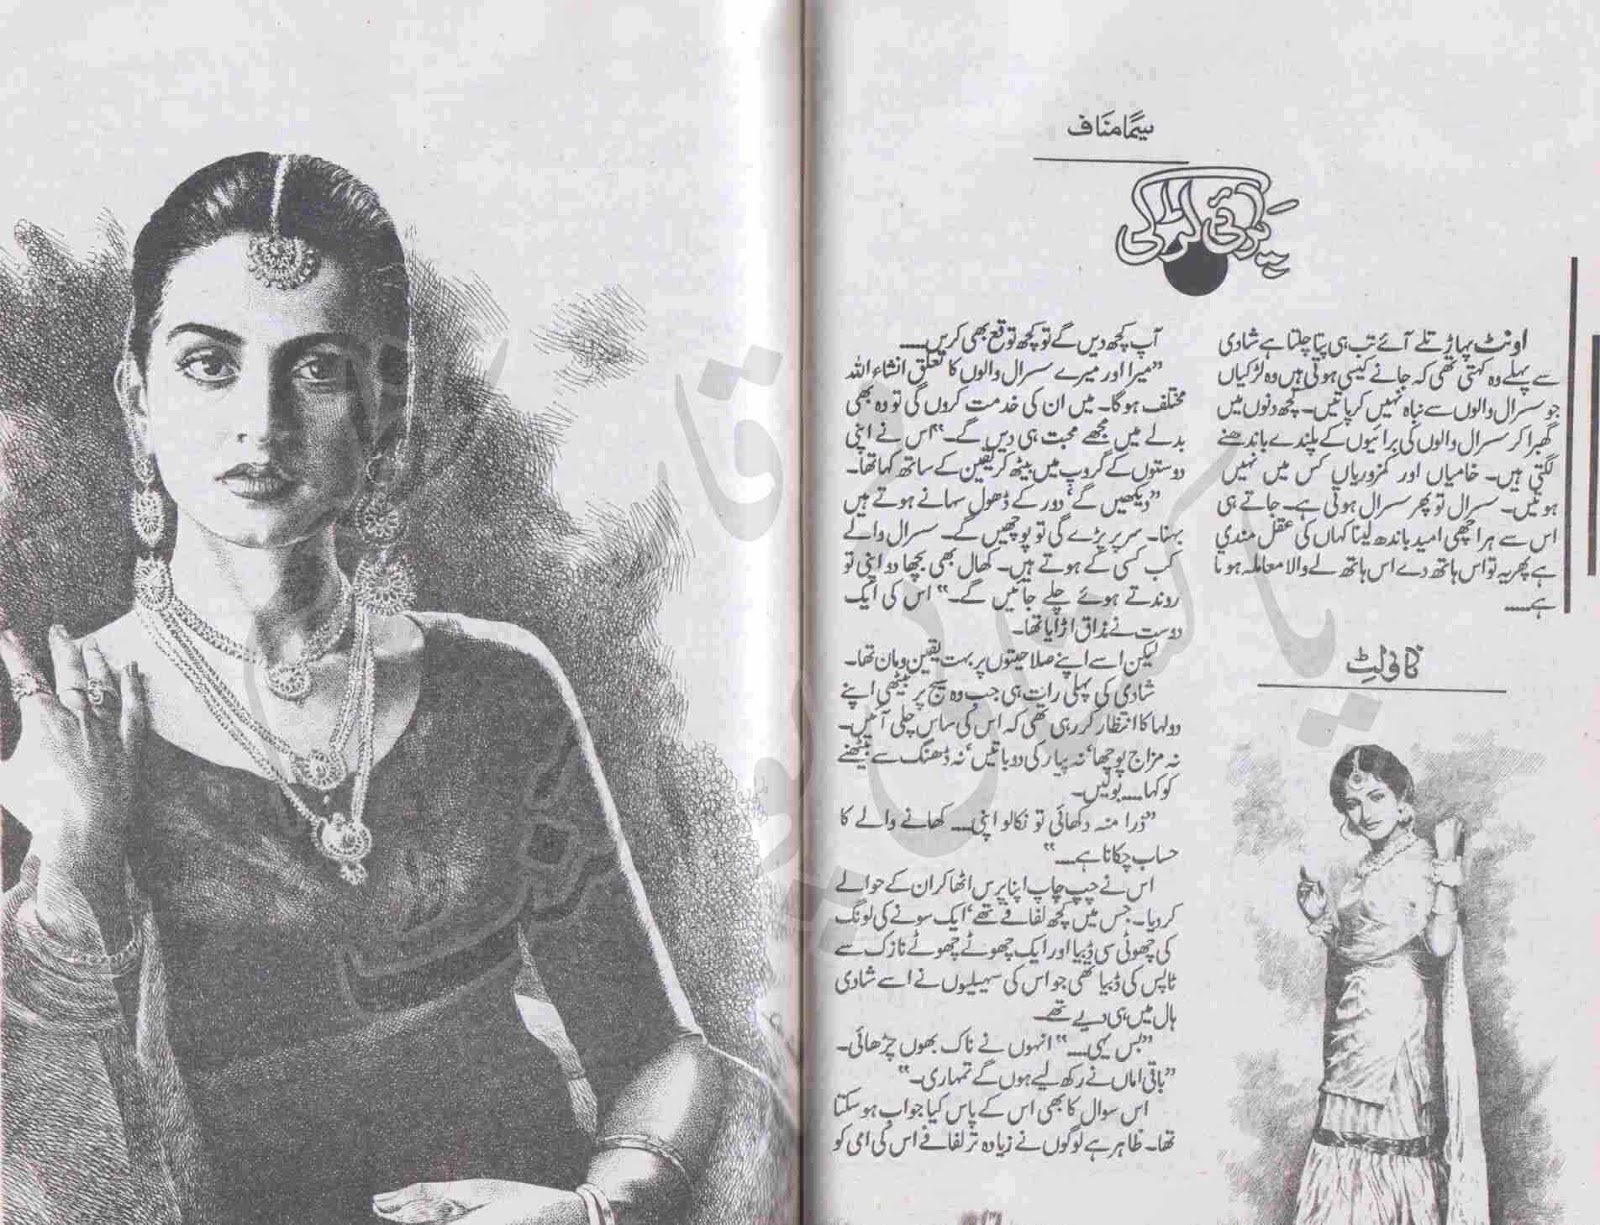 سیما مناف
پرائی لڑکی
اونٹ پہاڑ تلے آئے تب ہی پتا چلتا ہے شادی
سے پہلے وہ کہتی تھی کہ جانے کیسی ہوتی ہیں وہ لڑکیاں
جو سسرال والوں سے نباہ نہیں کر پاتیں۔ کچھ دنوں میں
گھبرا کر سسرال والوں کی برائیوں کے پلندے باندھنے
لگتی ہیں۔ خامیاں اور کمزوریاں کس میں نہیں
ہوتیں۔ سسرال تو پھر سسرال ہوتی ہے۔ جاتے ہی
اس سے ہر اچھی امید باندھ لینا کہاں کی عقل مندی
ہے پھر یہ تو اس ہاتھ دے اس ہاتھ لے والا معاملہ ہوتا
ہے.....
ناولٹ
آپ کچھ دیں گے تو کچھ توقع بھی کریں.....
”میرا اور میرے سسرال والوں کا تعلق انشاء اللہ
مختلف ہوگا۔ میں ان کی خدمت کروں گی تو وہ بھی
بدلے میں مجھے محبت ہی دیں گے۔“ اس نے اپنی
دوستوں کے گروپ میں بیٹھ کر یقین کے ساتھ کہا تھا۔
”دیکھیں گے‘ دور کے ڈھول سہانے ہوتے ہیں
بہنا۔ سر پر پڑے گی تو پوچھیں گے۔ سسرال والے
کب کسی کے ہوتے ہیں۔ کھال بھی بچھا دو اپنی تو
روندتے ہوئے چلے جائیں گے۔“ اس کی ایک
دوست نے مذاق اڑایا تھا۔
لیکن اسے اپنے صلاحیتوں پر بہت یقین و مان تھا۔
شادی کی پہلی رات ہی جب وہ سیج پر بیٹھی اپنے
دولہا کا انتظار کر رہی تھی کہ اس کی ساس چلی آئیں۔
نہ مزاج پوچھا‘ نہ پیار کی دو باتیں‘ نہ ڈھنگ سے بیٹھنے
کو کہا..... بولیں۔
”ذرا منہ دکھائی تو نکالو اپنی..... کھانے والے کا
حساب چکانا ہے.....“
اس نے چپ چاپ اپنا پرس اٹھا کر ان کے حوالے
کر دیا۔ جس میں کچھ لفافے تھے‘ ایک سونے کی لونگ
کی چھوٹی سی ڈبیا اور ایک چھوٹے چھوٹے نازک سے
ٹاپس کی ڈبیا تھی جو اس کی سہیلیوں نے اسے شادی
ہال میں ہی دیے تھے۔
”بس یہی.....“ انہوں نے ناک بھوں چڑھائی۔
”باقی اماں نے رکھ لیے ہوں گے تمہاری۔“
اس سوال کا بھی اس کے پاس کیا جواب ہو سکتا
تھا۔ ظاہر ہے لوگوں نے زیادہ تر لفافے اس کی امی کو